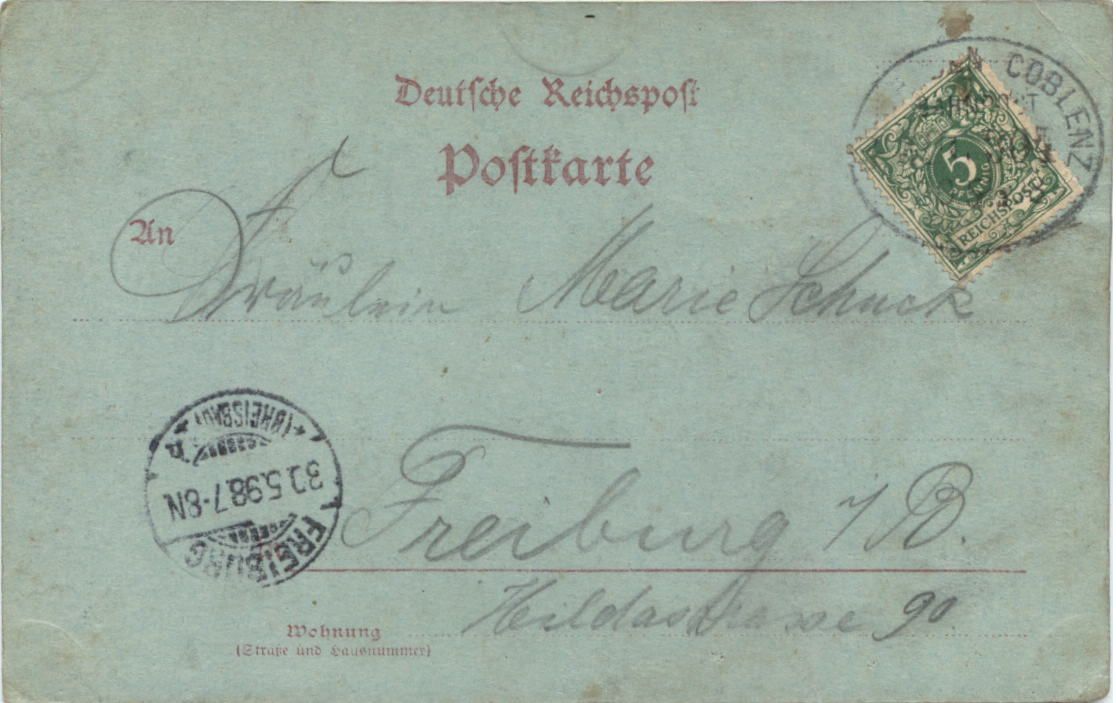 Deutsche Reichspost
Postkarte
COBLENZ
BAHNPOST
5
PFENNIG
REICHSPOST
An
Fräulein Marie Schuck
FREIBURG
30.5.98.7-8N
(BREISGAU)
Freiburg i/B.
Hildastrasse 90
Wohnung
(Straße und Hausnummer)